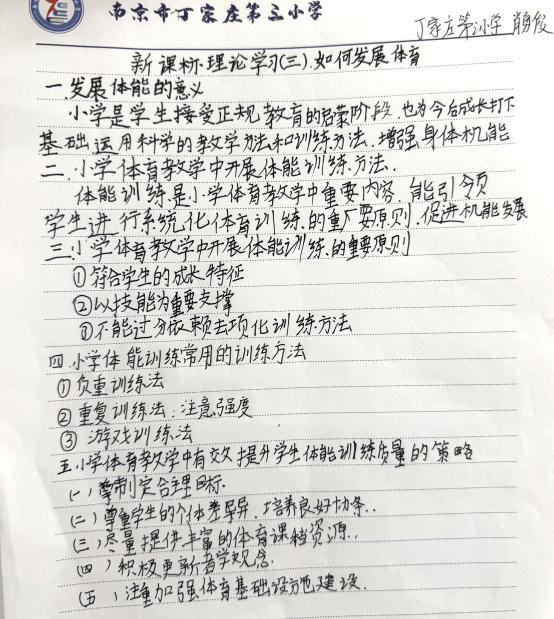 南京市丁家庄第三小学
丁家庄第三小学 肖俊
新课标理论学习(三).如何发展体育
一.发展体能的意义
小学是学生接受正规教育的启蒙阶段.也为今后成长打下
基础运用科学的教学方法和训练方法.增强身体机能
二.小学体育教学中开展体能训练方法.
体能训练是小学体育教学中重要内容.能引领
学生进行系统化体育训练的重要原则.促进机能发展
三.小学体育教学中开展体能训练的重要原则
①符合学生的成长特征
②以技能为重要支撑
①不能过分依赖专项化训练方法
四.小学体能训练常用的训练方法
①负重训练法
②重复训练法:注意强度
③ 游戏训练法
五.小学体育教学中有效提升学生体能训练质量的策略
(一)制定合理目标.
(二)尊重学生的个体差异.培养良好协条..
(三)尽量提供丰富的体育课程资源..
(四)积极更新教学观念.
(五)注重加强体育基础设施建设.